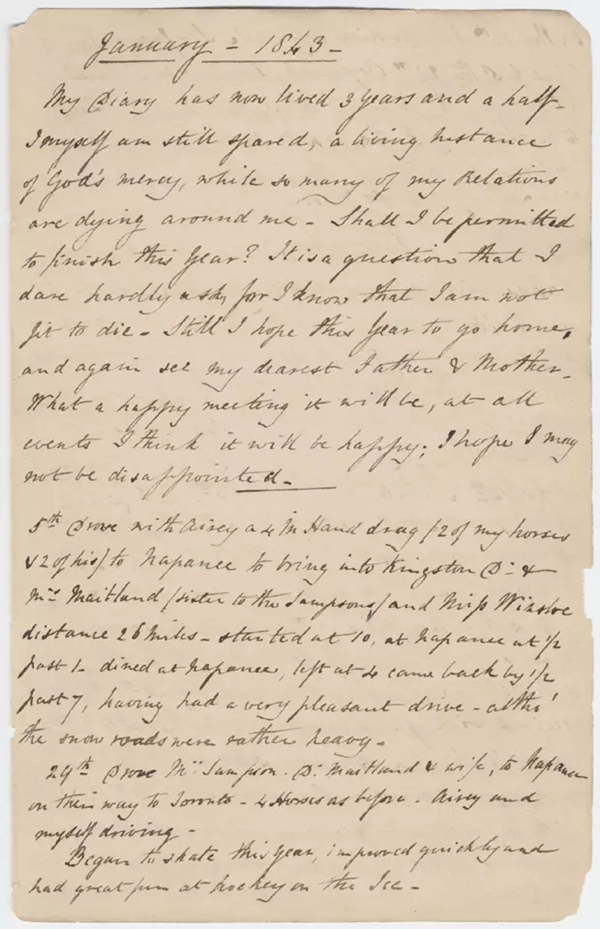 January - 1843 -
My Diary has now lived 3 Years and a half -
I myself am still spared, a living instance
of God's mercy, while so many of my Relations
are dying around me - Shall I be permitted
to finish this Year? It is a question that I
dare hardly ask, for I know that I am not
fit to die - Still I hope this Year to go home,
and again see my dearest Father & Mother -
What a happy meeting it will be, at all
events I think it will be happy; I hope I may
not be disappointed -
5th Drove with Airey a 4 in Hand drag /2 of my horses
& 2 of his/ to Napanee to bring into Kingston Dr. &
Mrs Maitland /sister to the Sampsons/ and Miss
distance 26 Miles - started at 10, at Napanee at 1/2
past 1 - dined at Napanee, left at 4 came back by 1/2
past 7, having had a very pleasant drive - altho'
the snow roads were rather heavy -
29th Drove Mrs Sampson. Dr. Maitland & wife, to Napanee
on their way to Toronto - 4 Horses as before - Airey and
myself driving -
Began to skate this Year, improved quickly and
had great fun at hockey on the Ice -